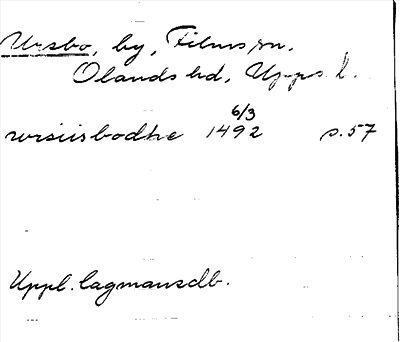 Ursbo, by, Films sn.
Olands hd, Upps. l.
6/3
wrsiisbodhe 1492 s. 57
Uppl. lagmansdb.